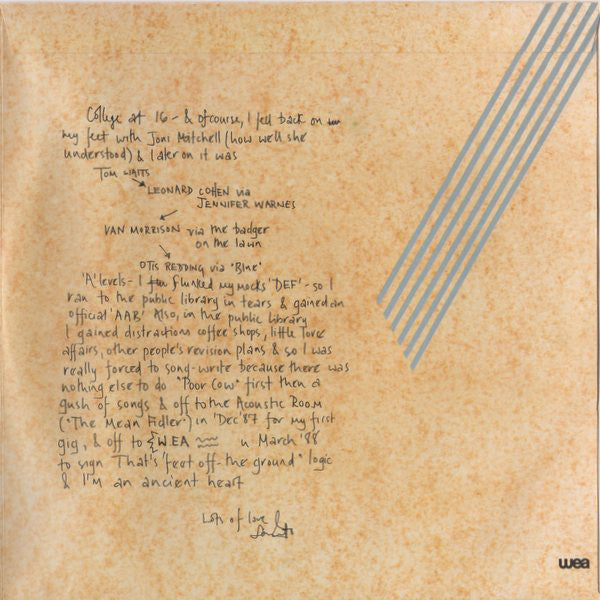 College at 16 - & ofcourse, I fell back on
my feet with Joni Mitchell (how well she
understood) & later on it was
TOM WAITS
LEONARD COHEN via
JENNIFER WARNES
VAN MORRISON via the badger
on the lawn
OTIS REDDING via "Blue"
'A' levels - I flunked my mocks 'DEF' - so I
ran to the public library in tears & gained an
official 'AAB' Also, in the public library
I gained distractions coffee shops, little
affairs, other people's revision plans & so I was
really forced to song-write because there was
nothing else to do "Poor Cow" first then a
gush of songs & off to the Acoustic Room
("The Mean Fidler") in 'Dec '87 for my first
gig, & off to W.E.A March '88
to sign That's "feet off-the ground" logic
& I'm an ancient heart
Lots of love
wea